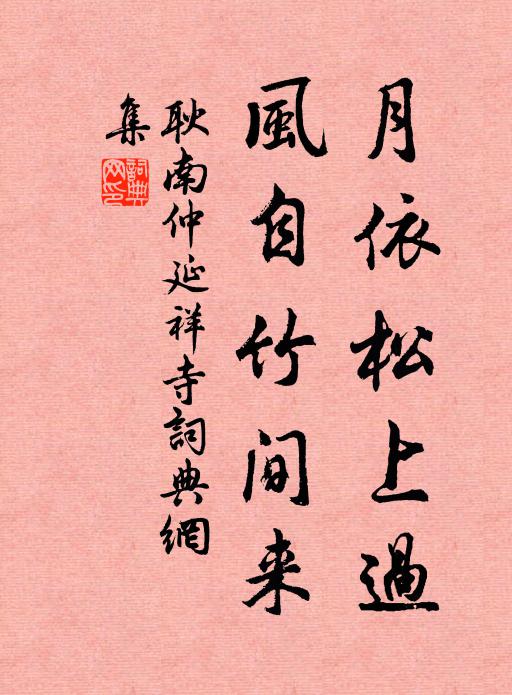 月依松上過
風自竹间来
耿南仲延祥寺詞典網
集
詞典網印